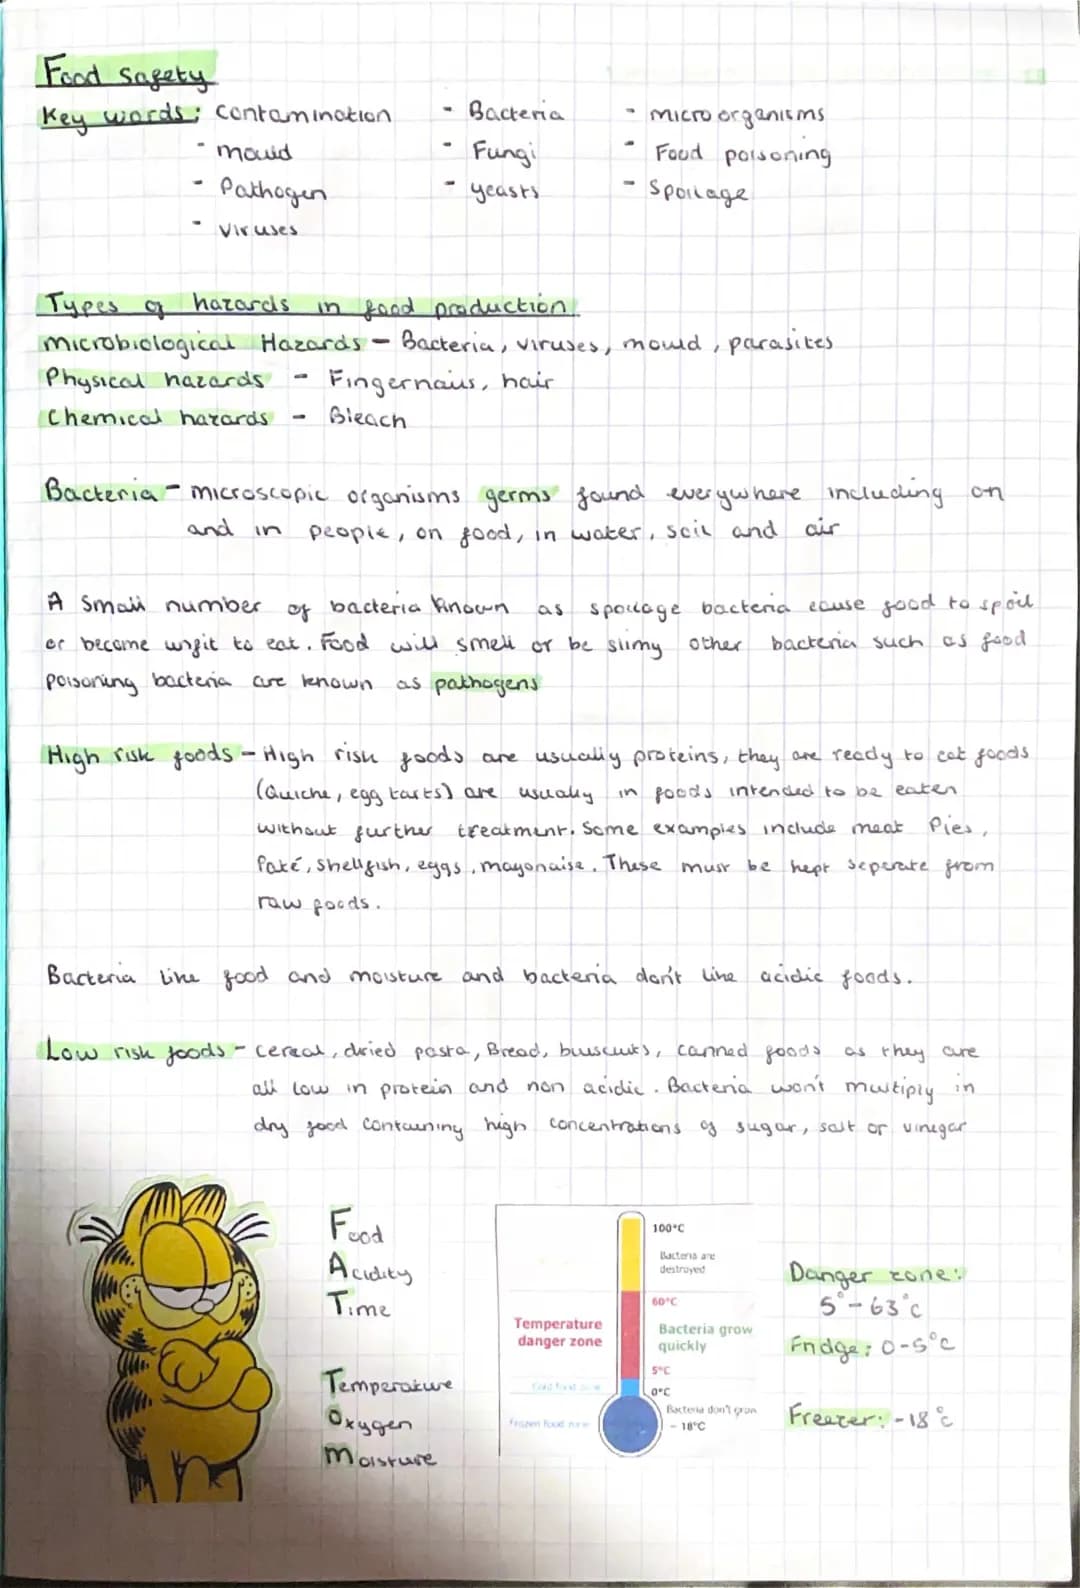 Food Safety
Key words: contamination - Bacteria - micro organisms
- mould - Fungi - Food poisoning
- Pathogen - yeasts - Spoilage
- viruses
Types of hazards in food production
microbiological Hazards - Bacteria, viruses, mould, parasites
Physical hazards - Fingernails, hair
Chemical hazards - Bleach
Bacteria - microscopic organisms germs found everywhere including on
and in people, on food, in water, soil and air
A small number of bacteria known as spoilage bacteria cause food to spoil
or become unfit to eat. Food will smell or be slimy other bacteria such as food
poisoning bacteria are known as pathogens
High risk foods - High risk foods are usually proteins, they are ready to eat foods
(Quiche, egg tarts) are usually in foods intended to be eaten
without further treatment. Some examples include meat Pies,
Paté, shellfish, eggs, mayonaise. These must be kept seperate from
raw foods.
Bacteria like food and moisture and bacteria don't like acidic foods.
Low risk foods - cereal, dried pasta, Bread, canned foods as they are
all low in protein and non acidic. Bacteria won't multiply in
dry food containing high concentrations of sugar, salt or vinegar
Food
Acidity
Time
Temperature
Oxygen
Moisture
100°C
Bacteria are
destroyed
60°C
Temperature
danger zone
Bacteria grow
quickly
5°C
Cold food zone
0°C
Bacteria don't grow
Frozen food zone
- 18°C
Danger zone:
5°-63°c
Fridge: 0-5°c
Freezer: -18°c